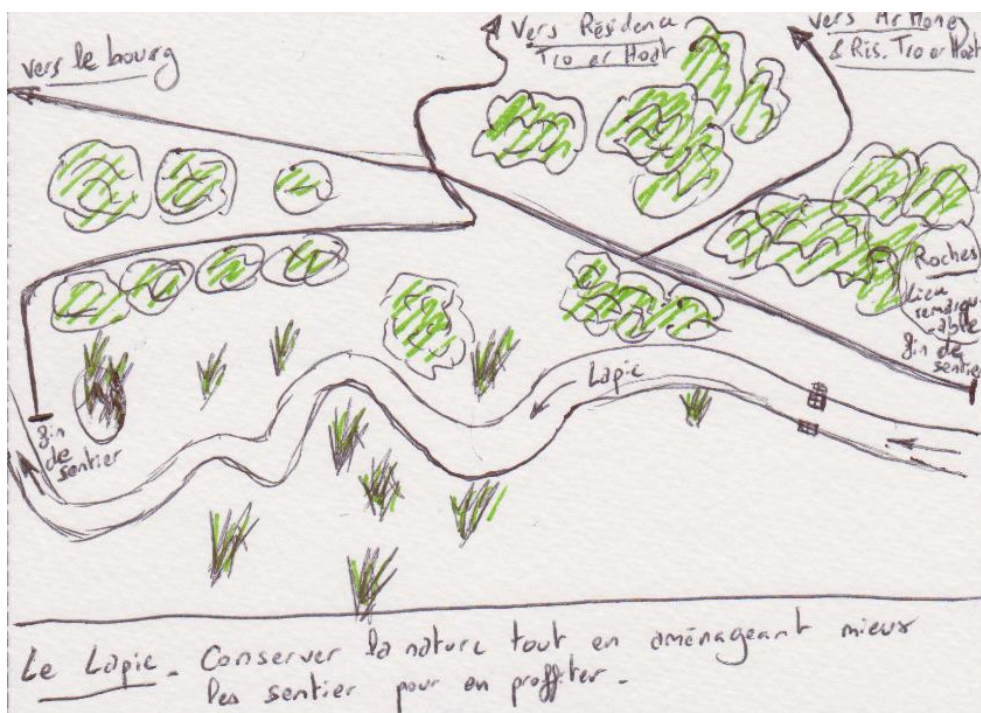 vers le bourg
Vers Résidence
Tro er Hoat
Vers Mr Money
& Rés. Tro er Hoat
Roches
Lieu
remarqu-
able
fin de
sentier
Lapic
fin
de
sentier
Le Lapic - Conserver la nature tout en aménageant mieux
les sentier pour en proffiter -